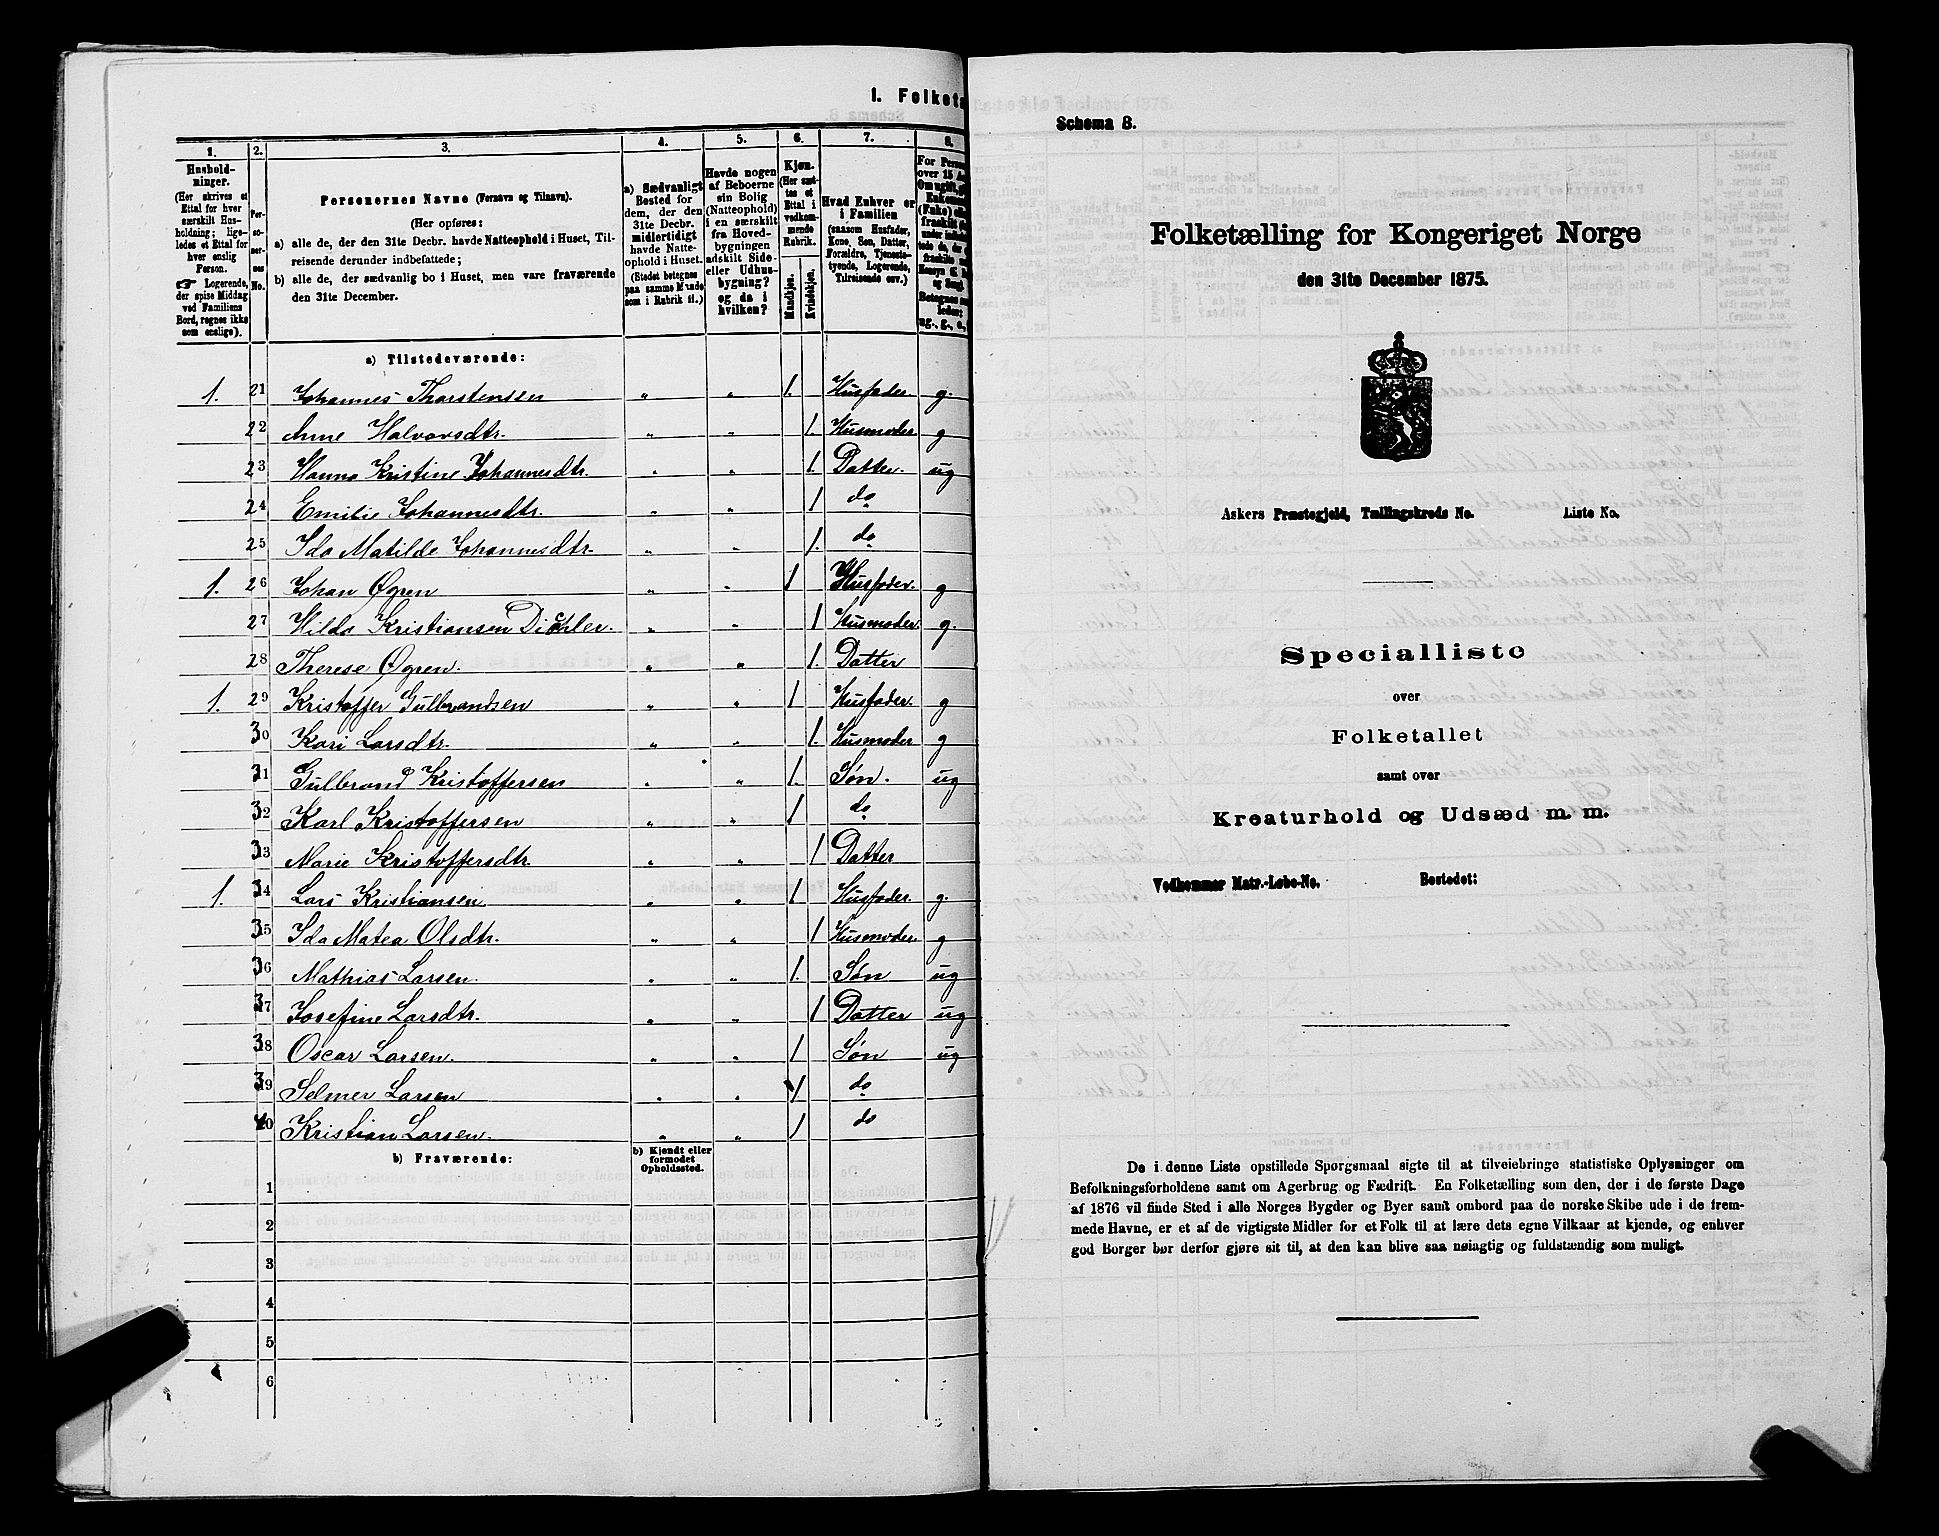 I. Folketæ
1. 2. 3. 4. 5. 6. 7. 8.
Hushold-
ninger.
(Her skrives et
Ettal for hver
særskilt Hus-
holdning; lige-
ledes et Ettal for
hver enslig
Person.
☞ Logerende,
der spise Middag
ved Familiens
Bord, regnes ikke
som enslige).
Per-
so-
ner-
nes
No.
Personernes Navne (Fornavn og Tilnavn).
(Her opføres:
a) alle de, der den 31te Decbr. havde Natteophold i Huset, Til-
reisende derunder indbefattede;
b) alle de, der sædvanlig bo i Huset, men vare fraværende
den 31te December.
a) Sædvanligt
Bosted for
dem, der den
31te Decbr.
midlertidigt
havde Natte-
ophold i Huset.
(Stedet betegnes
paa samme Maade
som i Rubrik 11.)
Havde nogen
af Beboerne
sin Bolig
(Natteophold)
i en særskilt
fra Hoved-
bygningen
adskilt Side-
eller Udhus-
bygning?
og da i
hvilken?
Kjøn.
(Her sæt-
tes et
Ettal i
vedkom-
mende
Rubrik.
Mandkjøn.
Kvindekjøn.
Hvad Enhver er
i Familien
(saasom Husfader,
Kone, Søn, Datter,
Forældre, Tjeneste-
tyende, Logerende,
Tilreisende osv.)
For Person
over 15 Aa
Om ugift, g
Enkeman
(Enke) elle
fraskilt
a) Tilstedeværende:
1. 21 Johannes Thorstensen „ „ 1. Husfader g.
22 Anne Halvorsdtr. „ „ 1. Husmoder g
23 Hanna Kristine Johannesdtr. „ „ 1 Datter. ug
24 Emilie Johannesdtr. „ „ 1 do
25 Ida Matilde Johannesdtr. „ „ 1. do
1. 26 Johan Øgren „ „ 1 Husfader. g
27 Hilda Kristiansen Dichler. „ „ 1 Husmoder. g.
28 Therese Øgren. „ „ 1. Datter
1. 29 Kristoffer Gulbrandsen „ „ 1 Husfader. g
30 Kari Larsdtr. „ „ 1. Husmoder g
31 Gulbrand Kristoffersen „ „ 1. Søn. ug
32 Karl Kristoffersen „ „ 1 do
33 Marie Kristoffersdtr. „ „ 1 Datter
1. 34 Lars Kristiansen „ „ 1 Husfader. g.
35 Ida Matea Olsdtr. „ „ 1 Husmoder. g
36 Mathias Larsen. „ „ 1. Søn ug
37 Josefine Larsdtr. „ „ 1 Datter ug
38 Oscar Larsen. „ „ 1 Søn ug
39 Selmer Larsen „ „ 1 do
40 Kristian Larsen. „ „ 1 do
b) Fraværende:
b) Kjendt eller
formodet
Opholdssted.
1
2
3
4
5
6
Schema 8.
Folketælling for Kongeriget Norge
den 31te December 1875.
Askers Præstegjeld, Tællingskreds No. Liste No.
Specialliste
over
Folketallet
samt over
Kreaturhold og Udsæd m. m.
Vedkommer Matr.-Løbe-No. Bostedet:
De i denne Liste opstillede Spørgsmaal sigte til at tilveiebringe statistiske Oplysninger om
Befolkningsforholdene samt om Agerbrug og Fædrift. En Folketælling som den, der i de første Dage
af 1876 vil finde Sted i alle Norges Bygder og Byer samt ombord paa de norske Skibe ude i de frem-
mede Havne, er et af de vigtigste Midler for et Folk til at lære dets egne Vilkaar at kjende, og enhver
god Borger bør derfor gjøre sit til, at den kan blive saa nøiagtig og fuldstændig som muligt.